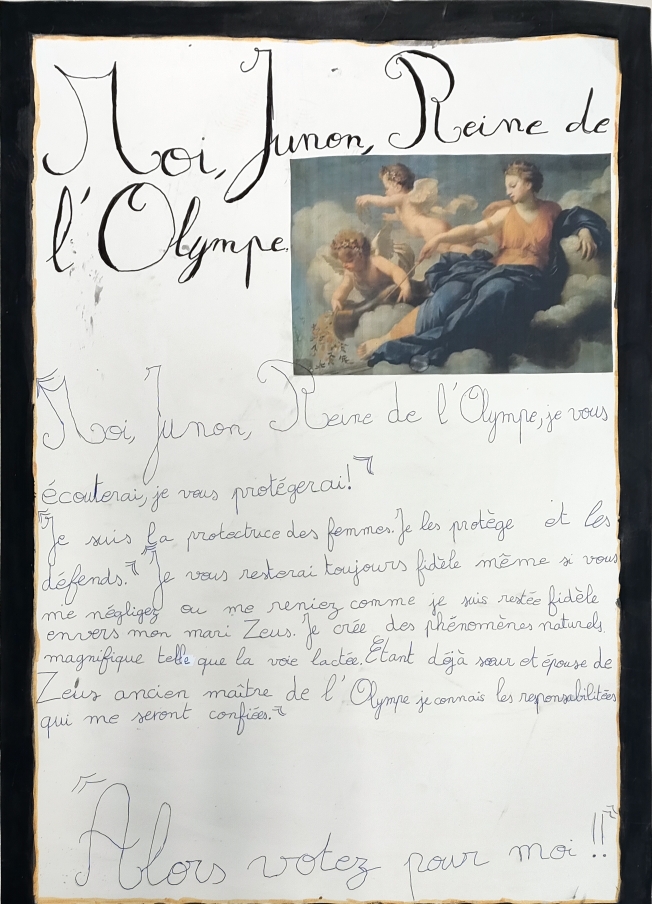 Moi, Junon, Reine de
l'Olympe.
"Moi, Junon, Reine de l'Olympe, je vous
écouterai, je vous protégerai!"
"Je suis la protectrice des femmes. Je les protège et les
défends." "Je vous resterai toujours fidèle même si vous
me négligez ou me reniez comme je suis restée fidèle
envers mon mari Zeus. Je crée des phénomènes naturels
magnifique telle que la voie lactée. Etant déjà sœur et épouse de
Zeus ancien maître de l'Olympe je connais les responsabilitées
qui me seront confiées."
"Alors votez pour moi !!"